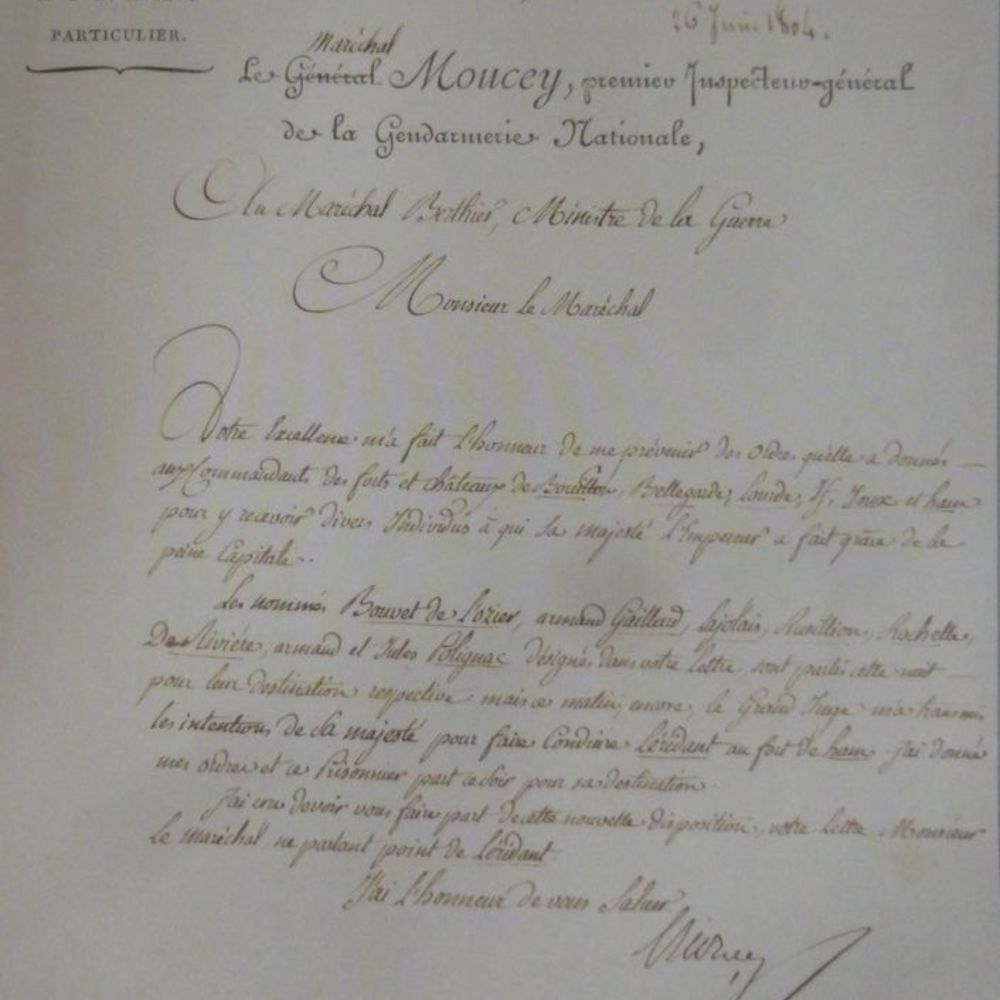 PARTICULIER.
26 Juin 1804.
Maréchal
Le Général Moncey, premier Inspecteur-général
de la Gendarmerie Nationale,
Au Maréchal Berthier, Ministre de la Guerre
Monsieur Le Maréchal
Votre Excellence m'a fait L'honneur De me prévenir des Ordres qu'elle a donnés
aux Commandants des forts et châteaux de Bouillon, Bellegarde, Lourde, If, Joux et ham
pour y recevoir divers Individus à qui Sa majesté L'Empereur a fait grace de la
peine Capitale.
Les nommés Bouvet de Lozier, armand Gaillard, Lajolais, Rusillion, Rochelle,
De Rivière, armand et Jules Polignac désignés dans votre lettre, sont partis cette nuit
pour leur destination respective mais ce matin, encore, le Grand Juge m'a transmis
les intentions de Sa majesté pour faire Conduire Léridant au fort de ham. J'ai donné
mes ordres et ce Prisonnier part ce soir pour sa destination.
J'ai cru devoir vous faire part de cette nouvelle disposition, votre Lettre, Monsieur
Le maréchal ne parlant point de Léridant.
J'ai L'honneur de vous Saluer
Moncey